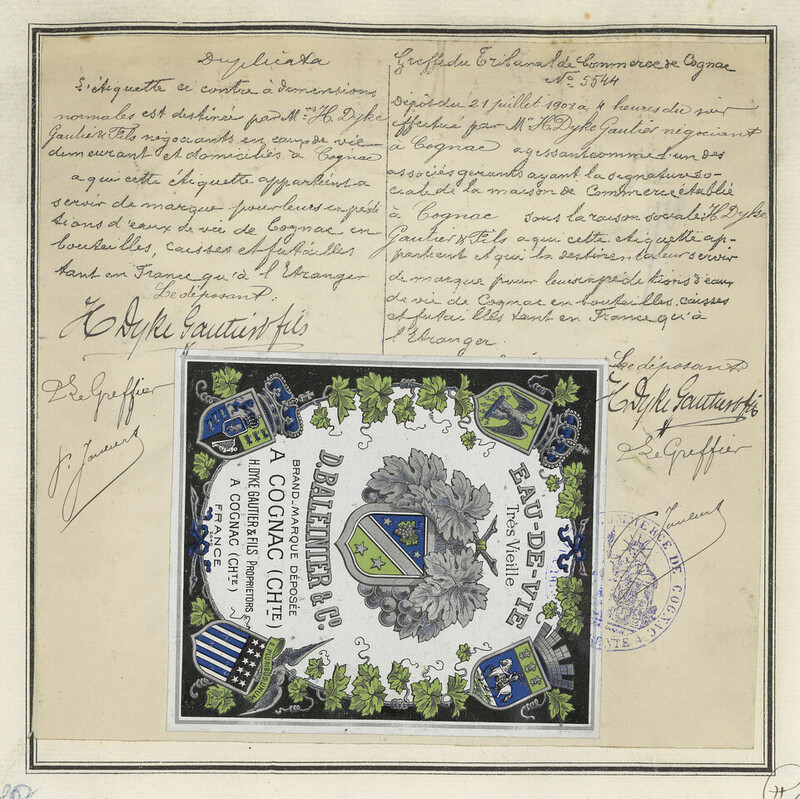 Duplicata
L'étiquette ci contre à dimensions
normales est destinée par Mrs H. Dyke
Gautier & Fils négociants en eaux de vie
demeurant et domiciliés à Cognac
a qui cette étiquette appartient a
servir de marque pour leurs expédi
tions d'eaux de vie de Cognac en
bouteilles, caisses et futailles
tant en France qu'à l'Etranger
Le déposant.
H Dyke Gautier & fils
Le Greffier
Greffe du Tribunal de Commerce de Cognac
No 5544
Dépôt du 21 juillet 1903 à 4 heures du soir
effectué par Mr H. Dyke Gautier négociant
à Cognac agissant comme l'un des
associés gerants ayant la signature so-
ciale de la maison de Commerce établie
à Cognac sous la raison sociale H. Dyke
Gautier & Fils a qui cette etiquette ap-
partient et qui la destine a leur servir
de marque pour leurs expéditions d'eaux
de vie de Cognac en bouteilles, caisses
et futailles tant en France qu'à
l'Etranger.
Le déposant
H. Dyke Gautier & fils
Le Greffier
EAU-DE-VIE
Très Vieille
D. BALEINIER & Co
BRAND_MARQUE DÉPOSÉE
A COGNAC (CHTE)
H. DYKE GAUTIER & FILS PROPRIETORS
A COGNAC (CHTE)
FRANCE
E PLURIBUS UNUM
COMMERCE DE COGNAC